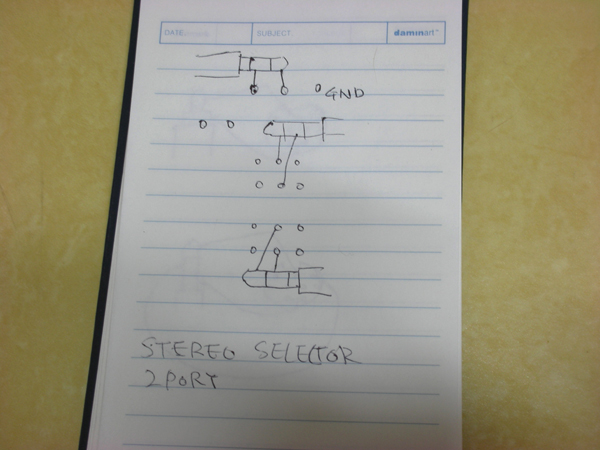 DATE SUBJECT daminart
GND
STEREO SELECTOR
2 PORT